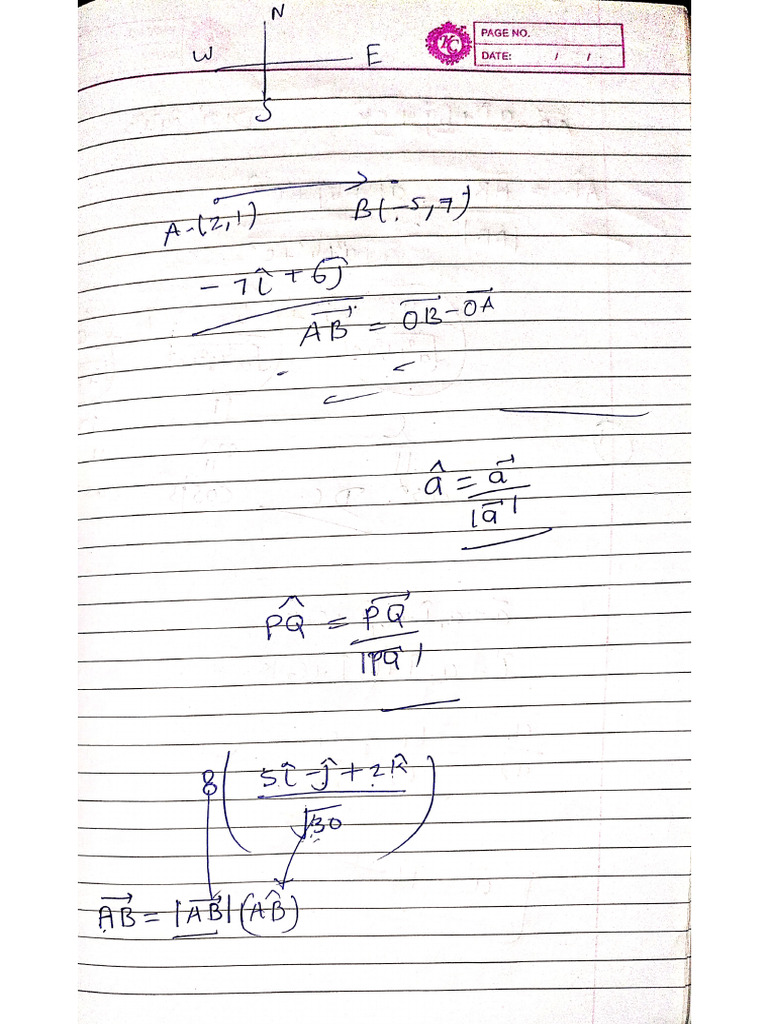 N
W E
S
KC
PAGE NO.
DATE: / /
A-(2,1) B(-5,7)
-7î + 6ĵ
AB⃗ = OB⃗ - OA⃗
â = a⃗ / |a⃗|
PQ̂ = PQ⃗ / |PQ⃗|
8 ( 5î - ĵ + 2k̂ / √30 )
AB⃗ = |AB⃗| (AB̂)